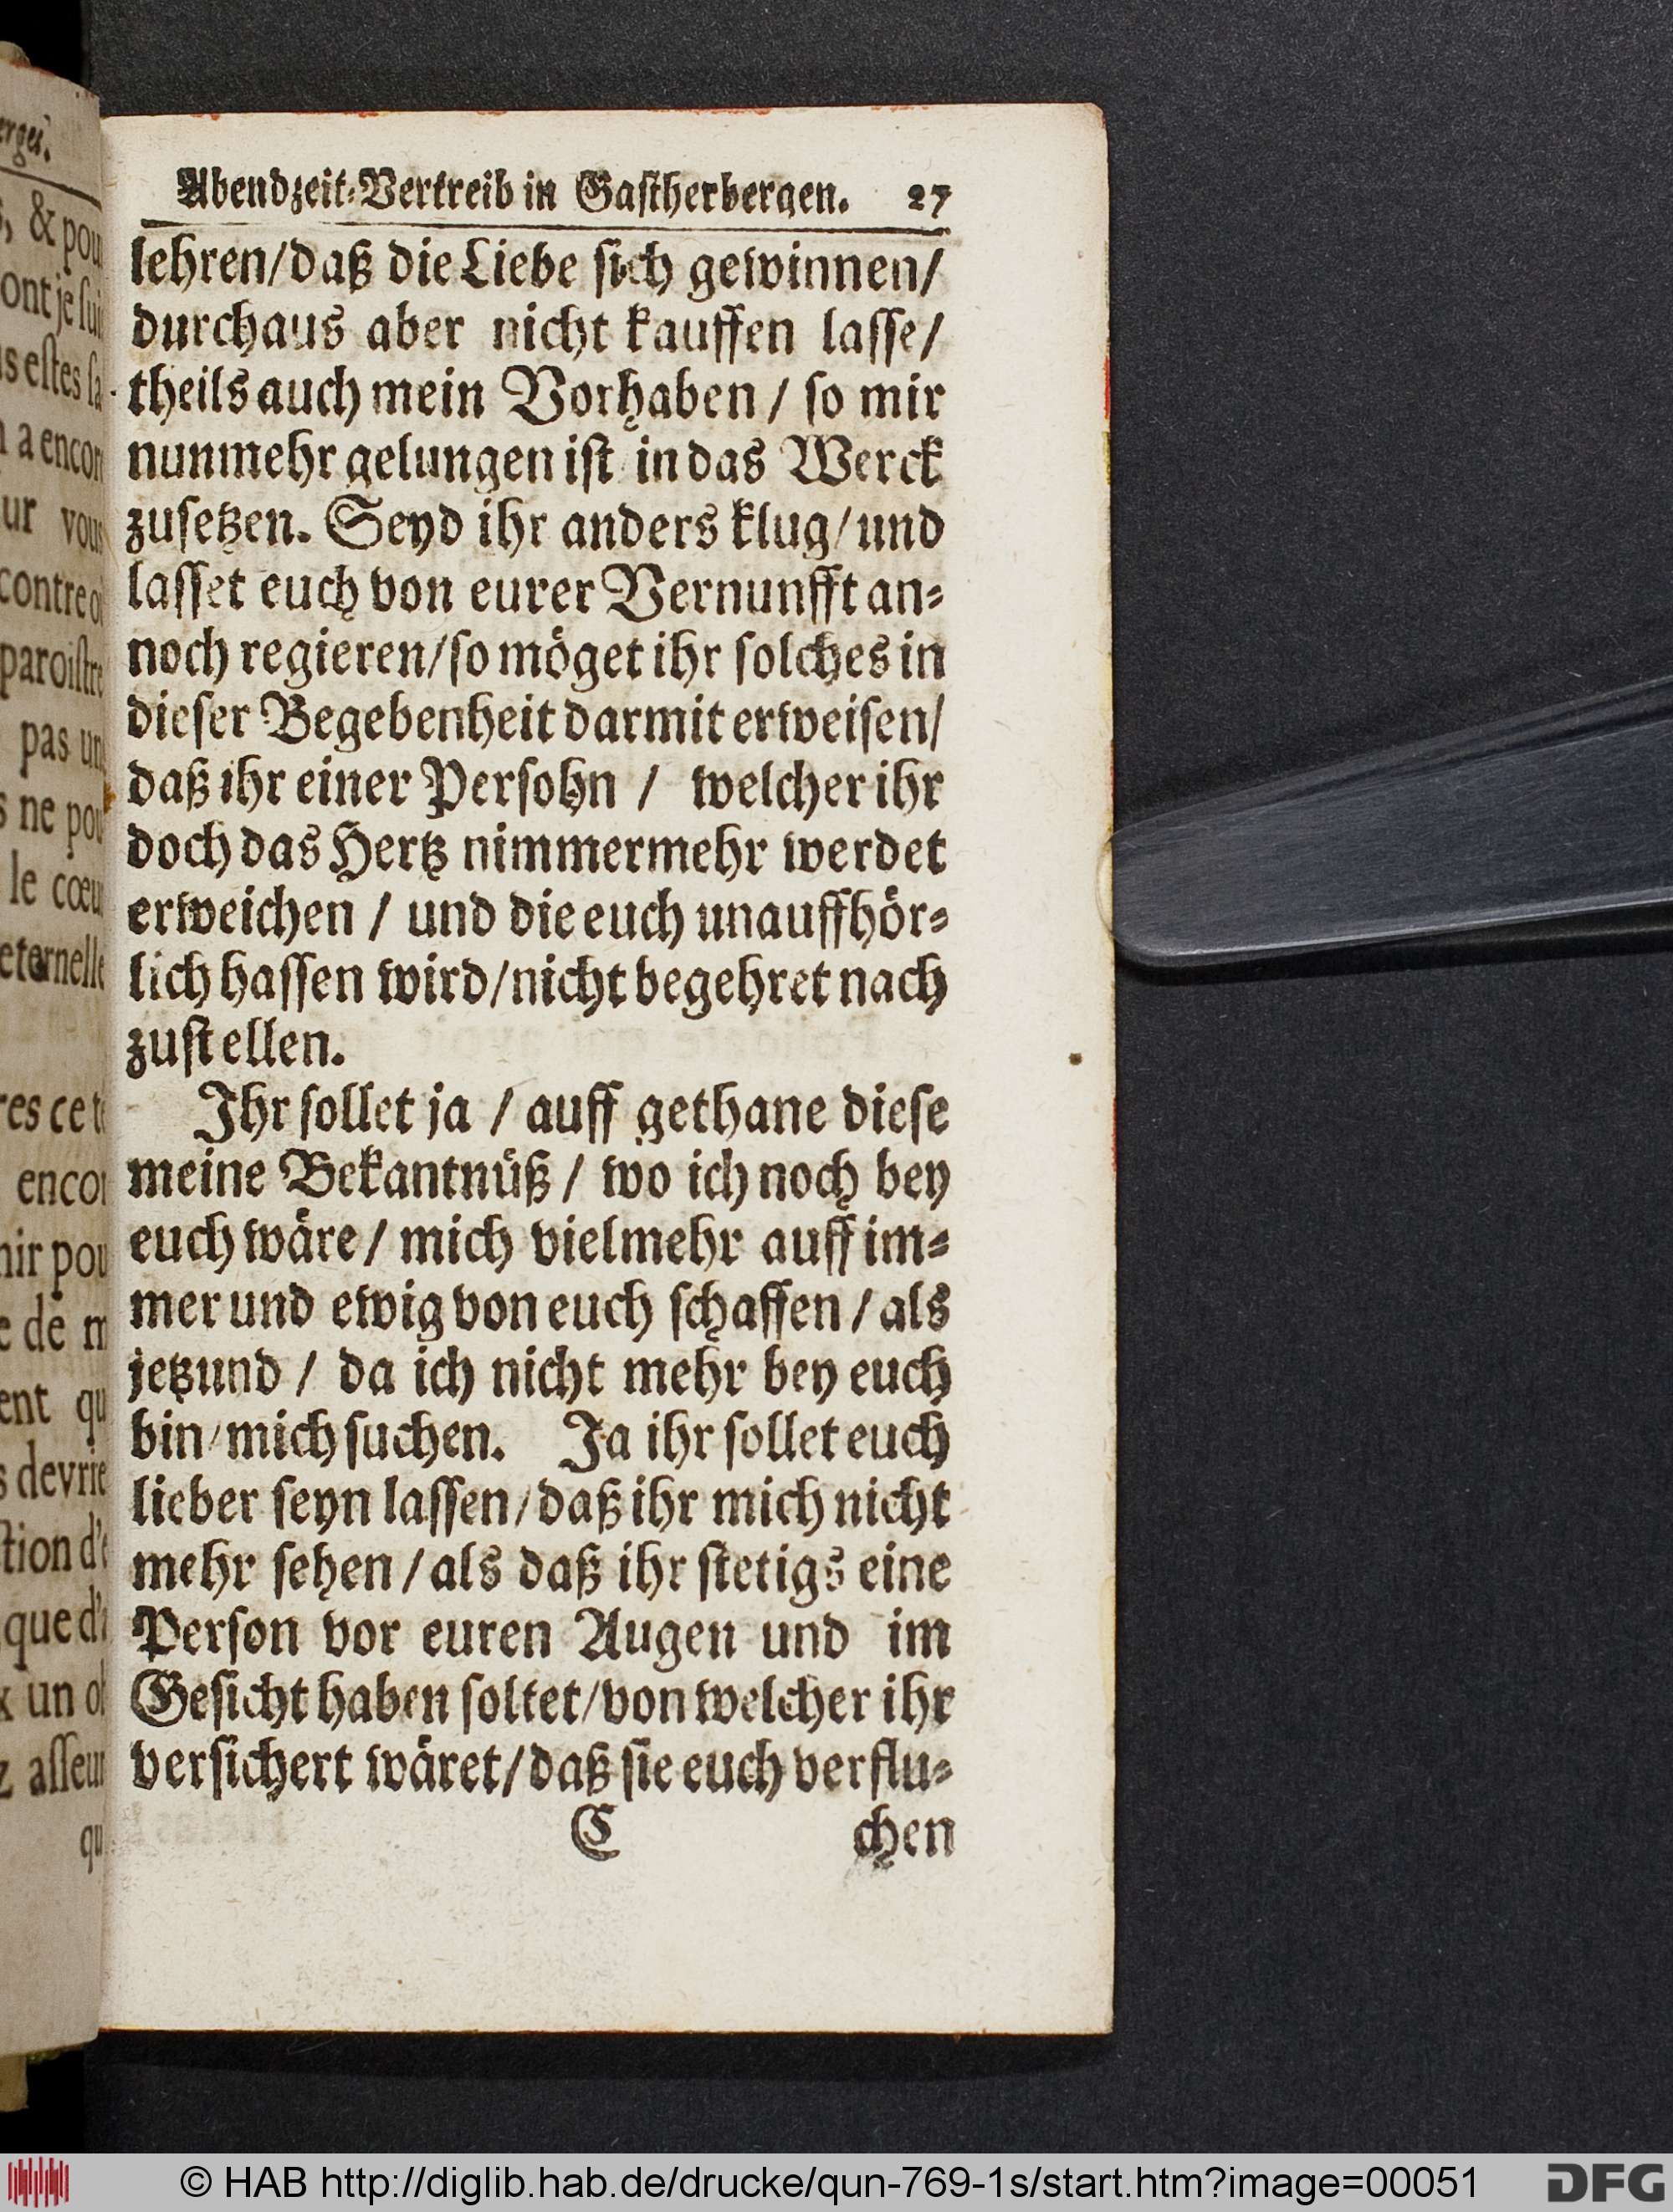 Abendzeit-Vertreib in Gastherbergen. 27
lehren/daß die Liebe sich gewinnen/
durchaus aber nicht kauffen lasse/
theils auch mein Vorhaben / so mir
nunmehr gelungen ist in das Werck
zusetzen. Seyd ihr anders klug/und
lasset euch von eurer Vernunfft an-
noch regieren/so möget ihr solches in
dieser Begebenheit darmit erweisen/
daß ihr einer Persohn / welcher ihr
doch das Hertz nimmermehr werdet
erweichen / und die euch unauffhör-
lich hassen wird/nicht begehret nach
zustellen.
Ihr sollet ja / auff gethane diese
meine Bekantnüß / wo ich noch bey
euch wäre / mich vielmehr auff im-
mer und ewig von euch schaffen / als
jetzund / da ich nicht mehr bey euch
bin/mich suchen. Ja ihr sollet euch
lieber seyn lassen/daß ihr mich nicht
mehr sehen / als daß ihr stetigs eine
Person vor euren Augen und im
Gesicht haben soltet/von welcher ihr
versichert wäret/daß sie euch verflu-
C chen
& pou
ont je sui
estes
a encor
ur vous
contre
paroistre
pas un
ne pou
le cœu
eternelle
ce
enco
pou
de
qu
devrie
que d'
un
asseur
qu
© HAB http://diglib.hab.de/drucke/qun-769-1s/start.htm?image=00051
DFG